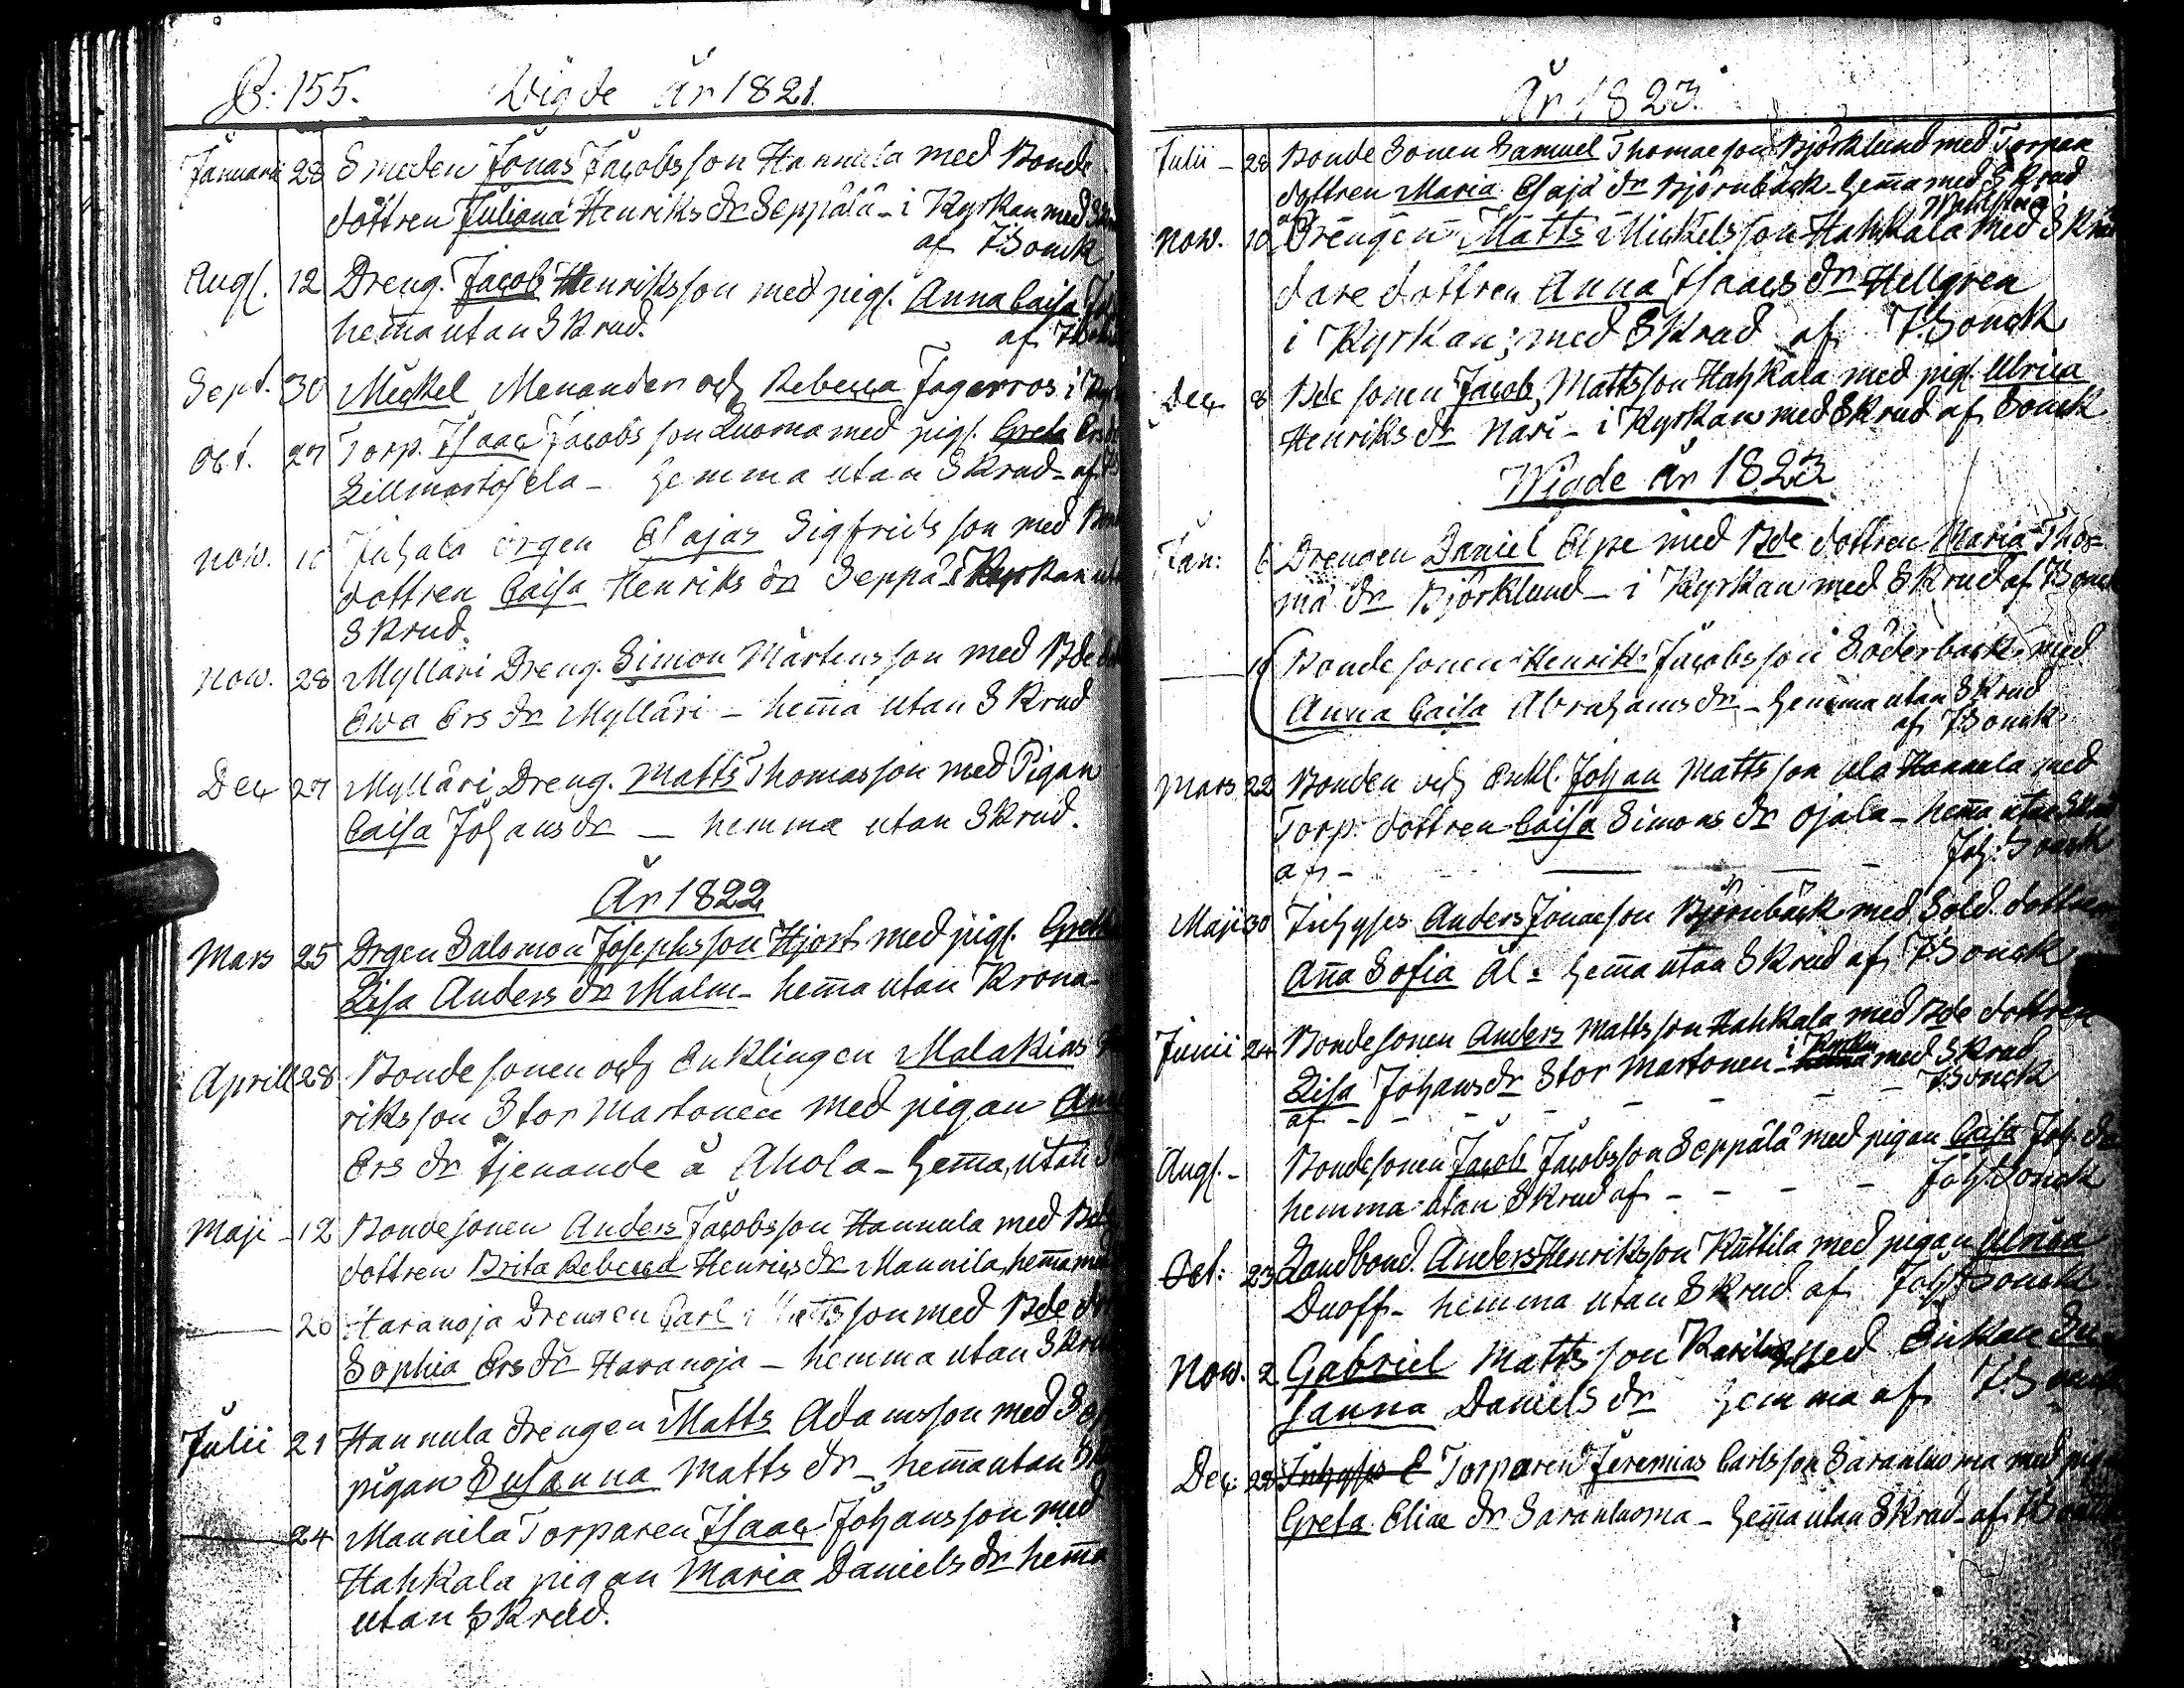 B: 155. Wigde år 1821.
Januarii 28 Smeden Jonas Jacobsson Hannula med Bonde
dottren Juliana Henriks dr Seppälä - i Kyrkan med
af J Sonck
Augs. 12 Dreng. Jacob Henriksson med pigs. Anna Caisa
hem̄a utan Skrud. af
Sept. 30 Mickel Menander och Rebecca Fagerros i
Oct. 27 Torp. Isaac Jacobsson Luoma med pigs. Greta Ers
Lillmartosela - hemma utan Skrud - af
Now. 10 Juhala örgen Esajas Sigfridsson med
dottren Caisa Henriks dr Seppä i Kyrkan
Skrud.
Now. 28 Mylläri Dreng. Simon Mårtensson med Bde
Ewa Ers dr Mylläri - hem̄a utan Skrud
Dec 27 Mylläri Dreng. Matts Thomasson med Pigan
Caisa Johans dr - hemma utan Skrud.
År 1822
Mars 25 Drgen Salomon Josephsson Hjort med pigs. Greta
Lisa Anders dr Malm - hem̄a utan Krona -
Aprill 28 Bondesonen och Enklingen Malakias
riksson Stor Martonen med pigan
Ers dr tjenande å Ahola - hem̄a, utan
Maji - 12 Bondesonen Anders Jacobsson Hannula med
dottren Brita Rebecca Henrics dr Mannila, hem̄a med
26 Haranoja Drengen Carl Mattsson med Bde
Sophia Ers dr Haranoja - hemma utan Skrud
Julii 21 Hannula drengen Matts Adamsson med
pigan Susanna Matts dr - hem̄a utan
24 Mannila Torparen Isaac Johansson med
Hahkala pigan Maria Daniels dr hem̄a
utan Skrud.
År 1823.
Julii - 28 Bonde Sonen Samuel Thomasson Björklund med Torpar
dottren Maria Esaja dr Björnback - hem̄a med Skrud
Now. 10 Drengen Matts Mickelsson Hahkala med Skräd
dare dottren Anna Isaacs dr Hellgren
i Kyrkan; med Skrud af J. Sonck
Dec 8 Bde sonen Jacob Mattsson Hahkala med pigs. Ulrica
Henriks dr Näri - i Kyrkan med Skrud af Sonck
Wigde år 1823
Jan: 6 Drengen Daniel Elpe med Bde dottren Maria Tho-
mä dr Björklund - i Kyrkan med Skrud af J Sonck
Bonde sonen Henrik Jacobsson Söderback med
Anna Caisa Abrahams dr - hemma utan Skrud
af J Sonck
Mars 22 Bonden och Enkl. Johan Mattsson ala Hannula med
Torp. dottren Caisa Simons dr Ojala - hem̄a utan Skrud
af - Joh: Sonck
Maji 30 Inhyses Anders Jonasson Björnback med Sold. dottren
An̄a Sofia Äl - hem̄a utan Skrud af J Sonck
Junii 24 Bondesonen Anders Mattsson Hahkala med Bde dottren
Lisa Johans dr Stor Martonen - i Kyrkan med Skrud
af - J Sonck
Augs. - Bondesonen Jacob Jacobsson Seppälä med pigan Caisa Joh. dr
hemma utan Skrud af - Joh Sonck
Oct: 23 Landbond. Anders Henriksson Knttila med pigan Ulrica
Duoff - hemma utan Skrud af Joh Sonck
Now. 2 Gabriel Mattsson Karilas med Enkan Su-
sanna Daniels dr hemma af J Sonck
Dec: 28 Inhyses E Torparen Jeremias Carlsson Saranluoma med pig
Greta Eliae dr Saranluoma - hem̄a utan Skrud - af J Sonck